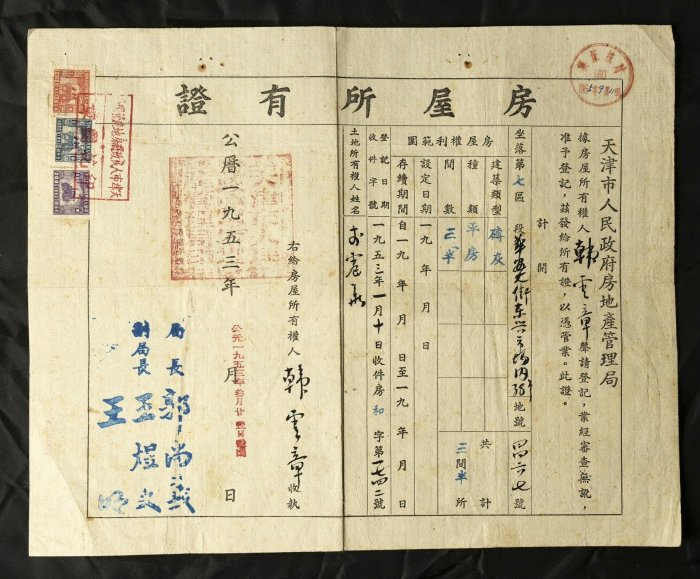 房屋所有證
天津市人民政府房地產管理局
據房屋所有權人韓雲章聲請登記,業經審查無訛,
准予登記,茲發給所有證,以憑管業。此證。
計開
坐落第七區 段 街東興市場內 地號四四六七號
房屋權利範圍
建築類型 磚灰
種類 平房
間數 三半
共計 三間半 所
設定日期 一九 年 月 日
存續期間 自一九 年 月 日至一九 年 月 日
登記日期 一九五三年一月十日
收件字號 收件房和字第一七四二號
土地所有權人姓名
右給房屋所有權人韓雲章收執
公曆一九五三年 月 日
局長 郭尚義
副局長 孟煜
王